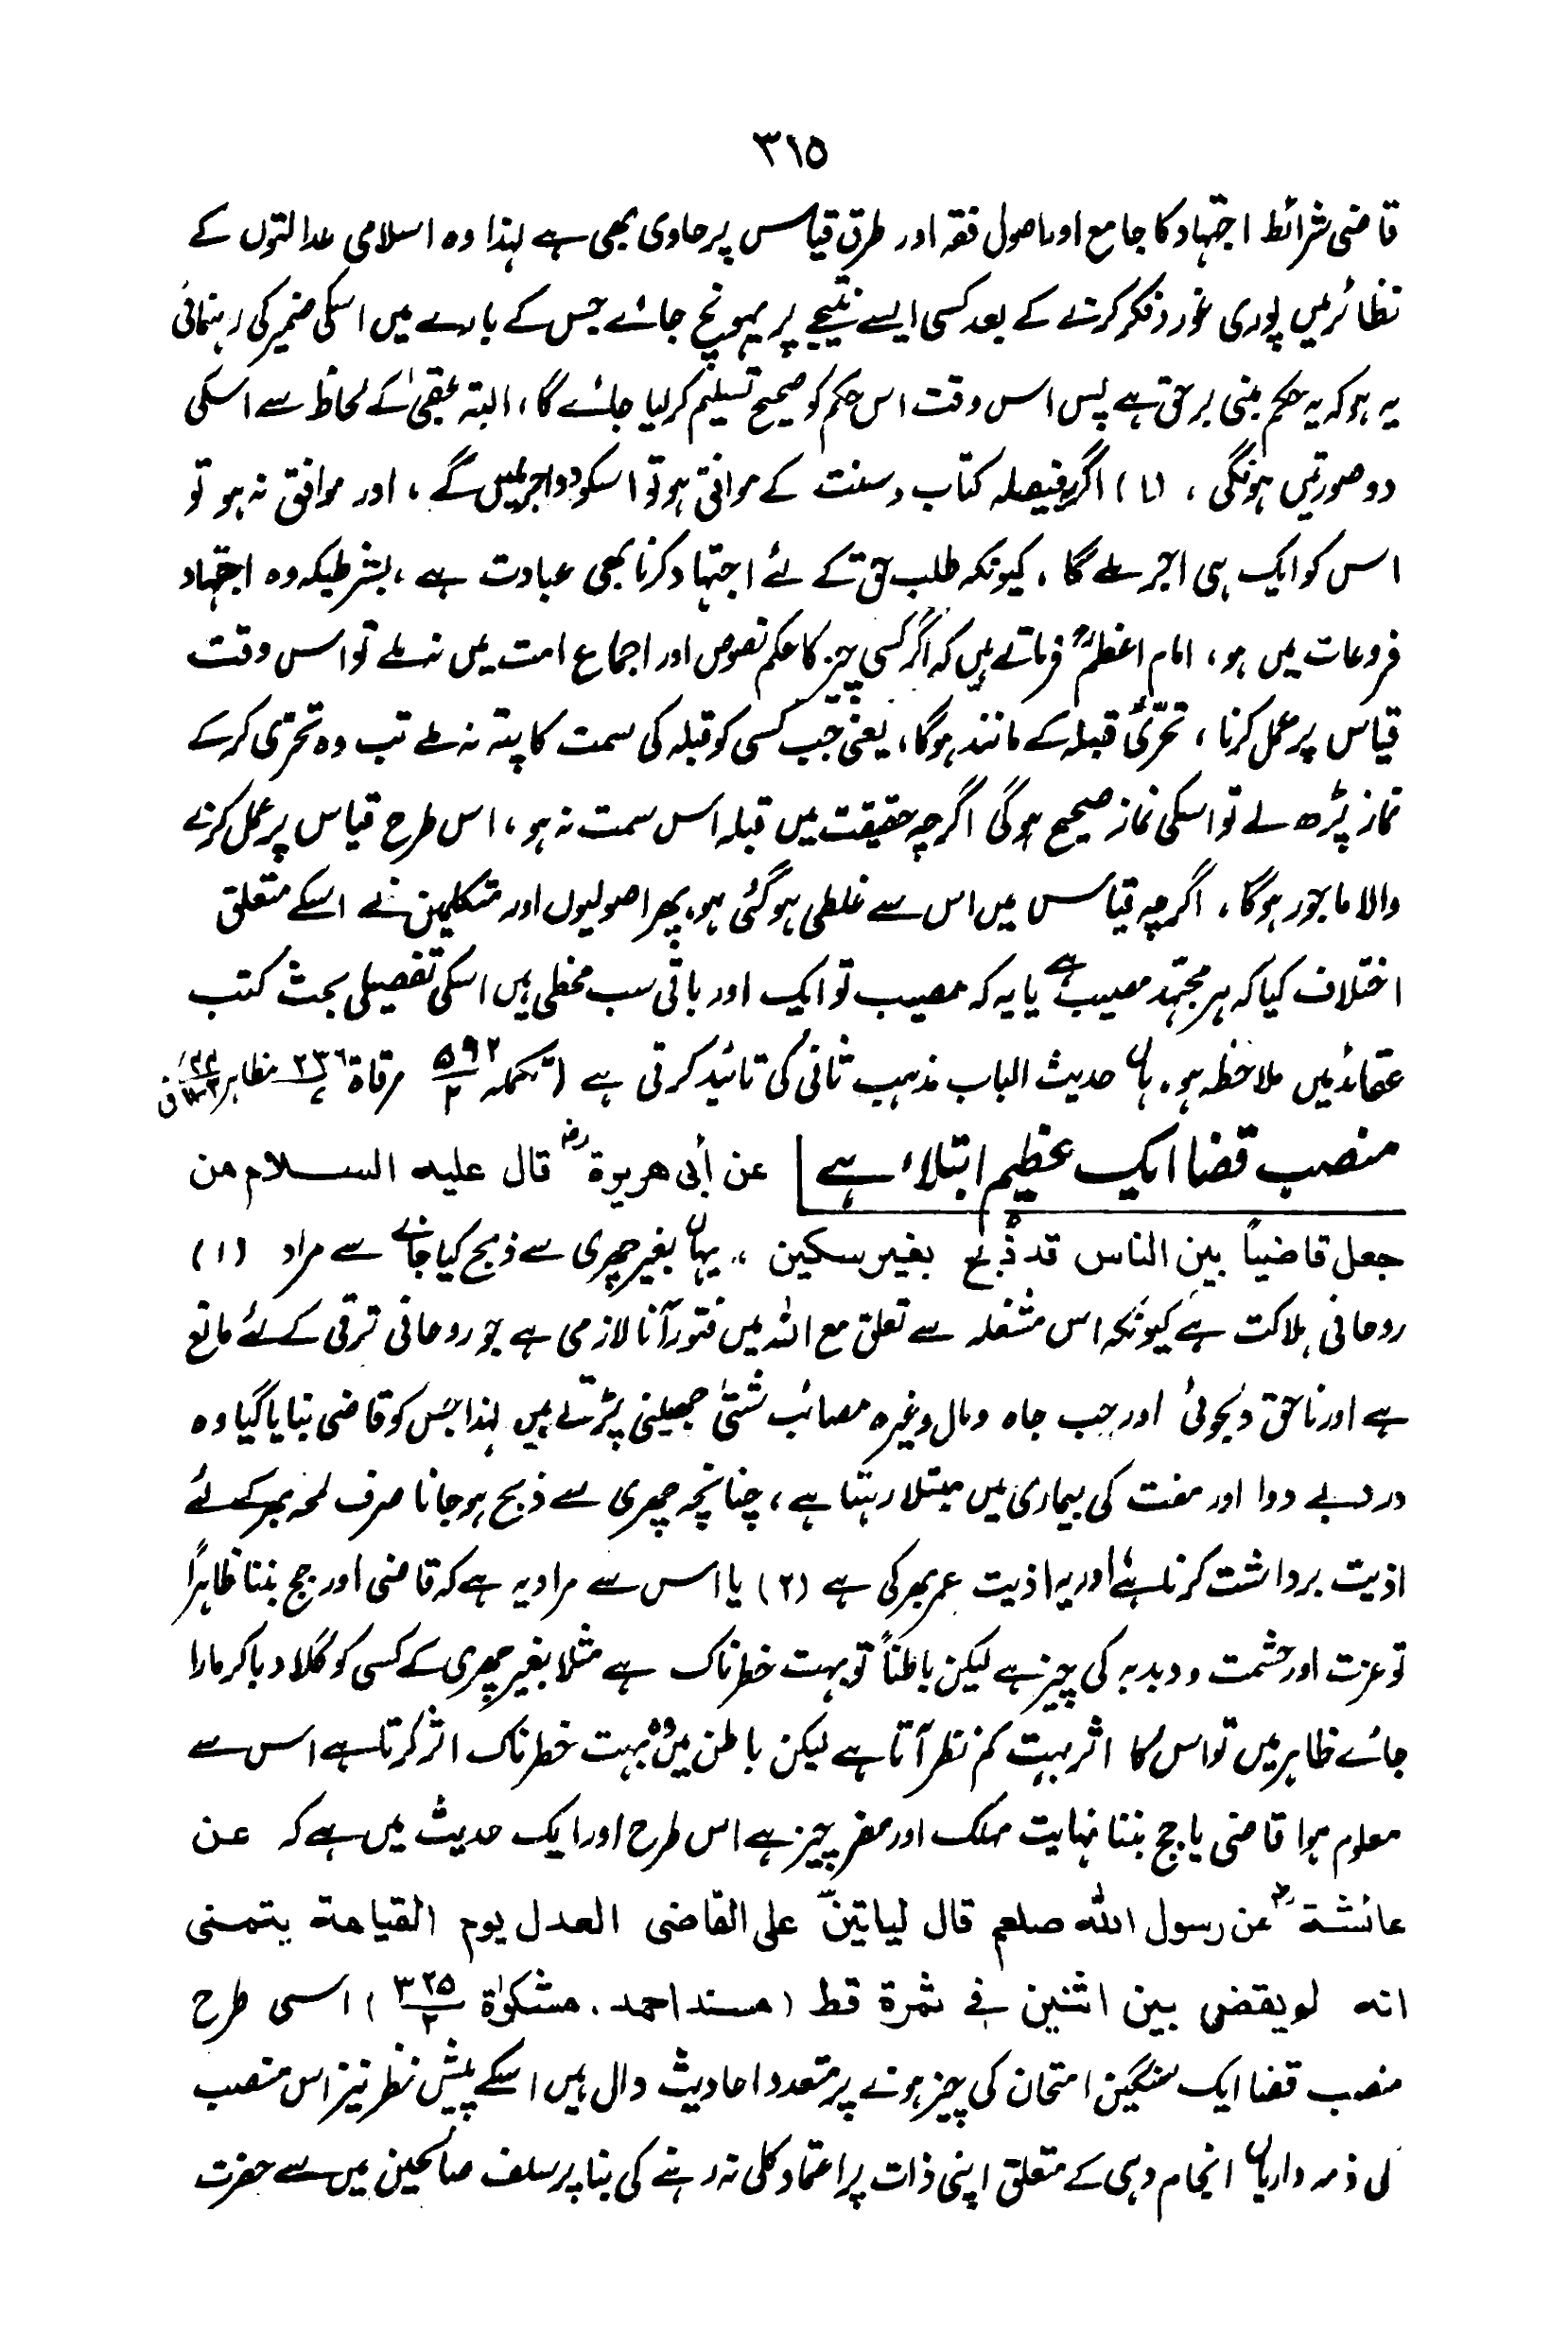 ٣١٥
قاضی شرائط اجتہاد کا جامع اور اصول فقہ اور طرق قیاس پر حاوی بھی ہے لہذا وہ اسلامی عدالتوں کے
نظائر میں پوری غور و فکر کرنے کے بعد کسی ایسے نتیجے پر پہونچ جائے جس کے بارے میں اسکی ضمیر کی رہنمائی
یہ ہو کہ یہ حکم مبنی بر حق ہے پس اس وقت اس حکم کو صحیح تسلیم کر لیا جائے گا، البتہ عقبیٰ کے لحاظ سے اسکی
دو صورتیں ہونگی، (۱) اگر فیصلہ کتاب و سنت کے موافق ہو تو اسکو دو اجر ملیں گے، اور موافق نہ ہو تو
اس کو ایک ہی اجر ملے گا، کیونکہ طلب حق کے لئے اجتہاد کرنا بھی عبادت ہے، بشرطیکہ وہ اجتہاد
فروعات میں ہو، امام اعظمؒ فرماتے ہیں کہ اگر کسی چیز کا حکم نصوص اور اجماع امت میں نہ ملے تو اس وقت
قیاس پر عمل کرنا، تحرّیٔ قبلہ کے مانند ہوگا، یعنی جب کسی کو قبلہ کی سمت کا پتہ نہ ملے تب وہ تحرّی کرکے
نماز پڑھ لے تو اسکی نماز صحیح ہوگی اگرچہ حقیقت میں قبلہ اس سمت نہ ہو، اس طرح قیاس پر عمل کرنے
والا ماجور ہوگا، اگرچہ قیاس میں اس سے غلطی ہوگئی ہو، پھر اصولیوں اور متکلمین نے اسکے متعلق
اختلاف کیا کہ ہر مجتہد مصیب ہے یا یہ کہ مصیب تو ایک اور باقی سب مخطی ہیں اسکی تفصیلی بحث کتب
عقائد میں ملاحظہ ہو۔ ہاں حدیث الباب مذہب ثانی کی تائید کرتی ہے (تکملہ ۵۹۲/۲ مرقاۃ ۲۳۶/۷ مظاہر
منصب قضا ایک عظیم ابتلاء ہے عن أبی هریرة رض قال علیه السلام من
جعل قاضیاً بین الناس قد ذُبح بغیر سکین، یہاں بغیر چھری سے ذبح کیا جانے سے مراد (۱)
روحانی ہلاکت ہے کیونکہ اس مشغلہ سے تعلق مع اللہ میں فتور آنا لازمی ہے جو روحانی ترقی کے لئے مانع
ہے اور ناحق دلجوئی اور حب جاہ و مال وغیرہ مصائب شتیٰ جھیلنی پڑتے ہیں لہذا جس کو قاضی بنایا گیا وہ
درد بے دوا اور مفت کی بیماری میں مبتلا رہتا ہے، چنانچہ چھری سے ذبح ہو جانا صرف لمحہ بھر کے لئے
اذیت برداشت کرنا ہے اور یہ اذیت عمر بھر کی ہے (۲) یا اس سے مراد یہ ہے کہ قاضی اور جج بننا ظاہراً
تو عزت اور حشمت و دبدبہ کی چیز ہے لیکن باطناً تو بہت خطرناک ہے مثلا بغیر چھری کے کسی کو گلا دبا کر مارا
جائے ظاہر میں تو اس کا اثر بہت کم نظر آتا ہے لیکن باطن میں وہ بہت خطرناک اثر کرتا ہے اس سے
معلوم ہوا قاضی یا جج بننا نہایت مہلک اور مضر چیز ہے اس طرح اور ایک حدیث میں ہے کہ عن
عائشة رض عن رسول الله صلعم قال لیاتینّ علی القاضی العدل یوم القیامة یتمنی
انه لو یقض بین اثنین فی ثمرة قط (مسند احمد، مشکوٰة ۳۲۵/۲) اسی طرح
منصب قضا ایک سنگین امتحان کی چیز ہونے پر متعدد احادیث دال ہیں اسکے پیش نظر نیز اس منصب
کی ذمہ داریاں انجام دہی کے متعلق اپنی ذات پر اعتماد کلی نہ رہنے کی بنا پر سلف صالحین میں سے حضرت